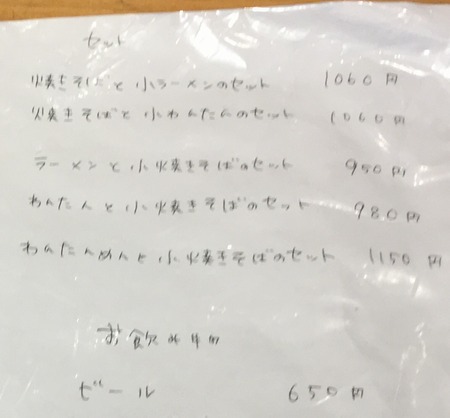 セット
焼きそばと小ラーメンのセット 1060円
焼きそばと小わんたんのセット 1060円
ラーメンと小焼きそばのセット 950円
わんたんと小焼きそばのセット 980円
わんたんめんと小焼きそばのセット 1150円
お飲み物
ビール 650円